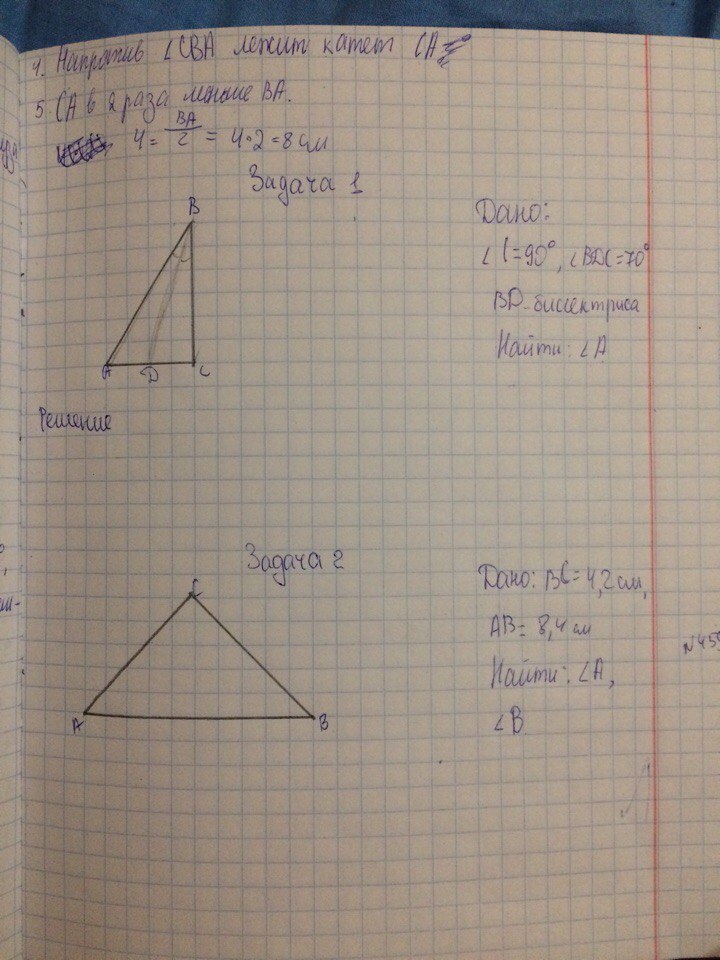 4. Напротив ∠CBA лежит катет CA
5 CA в 2 раза меньше BA.
4 = BA/2 = 4·2 = 8 см
Задача 1
B
A D C
Дано:
∠C=90°, ∠BDC=70°
BD-биссектриса
Найти: ∠A
Решение
Задача 2
C
A B
Дано: BC=4,2 см,
AB= 8,4 см
Найти: ∠A,
∠B